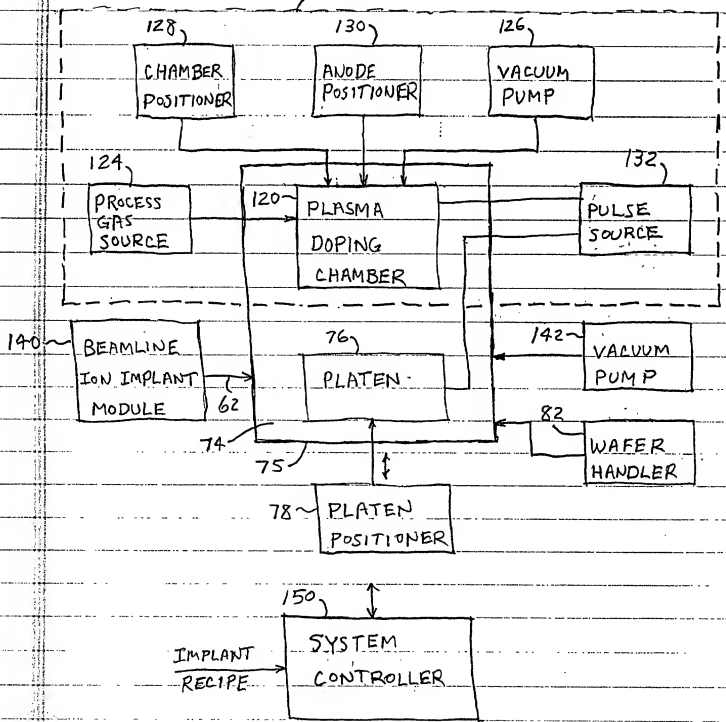 128
130
126
CHAMBER
POSITIONER
ANODE
POSITIONER
VACUUM
PUMP
124
132
PROCESS
GAS
SOURCE
120
PLASMA
DOPING
CHAMBER
PULSE
SOURCE
140
BEAMLINE
ION IMPLANT
MODULE
62
76
PLATEN
142
VACUUM
PUMP
74
75
82
WAFER
HANDLER
78
PLATEN
POSITIONER
150
SYSTEM
CONTROLLER
IMPLANT
RECIPE